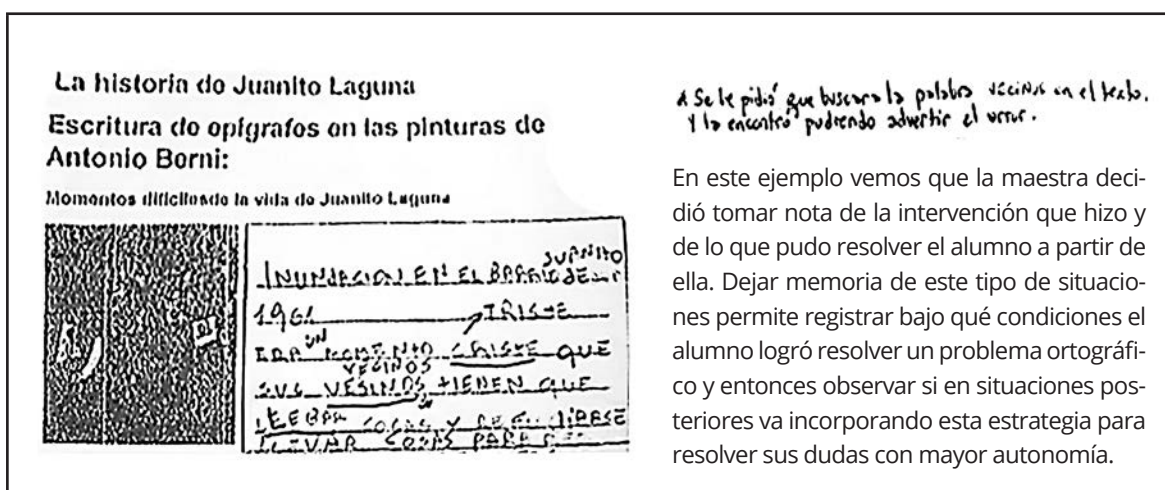 La historia de Juanito Laguna
Escritura de epígrafes en las pinturas de
Antonio Berni:
Momentos difíciles de la vida de Juanito Laguna
JUANITO
INUNDACION EN EL BARRIO DE
1961 TRISTE
ERA UN MOMENTO CRISTE QUE
VECINOS
SUS VESINOS TIENEN QUE
LLEBAR COSAS Y REFUJIARSE
LLEVAR COSAS PARA
Se le pidió que buscara la palabra vecinos en el texto.
Y la encontró pudiendo advertir el error.
En este ejemplo vemos que la maestra deci-
dió tomar nota de la intervención que hizo y
de lo que pudo resolver el alumno a partir de
ella. Dejar memoria de este tipo de situacio-
nes permite registrar bajo qué condiciones el
alumno logró resolver un problema ortográfi-
co y entonces observar si en situaciones pos-
teriores va incorporando esta estrategia para
resolver sus dudas con mayor autonomía.